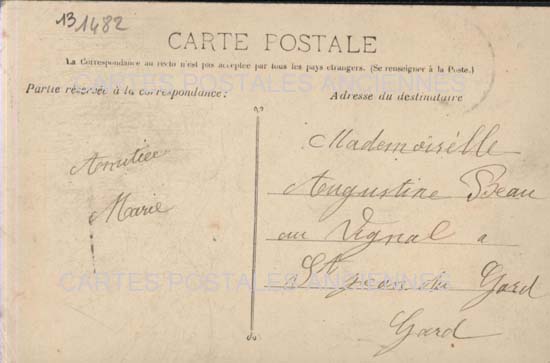 13 1482
CARTE POSTALE
La Correspondance au recto n'est pas acceptée par tous les pays étrangers. (Se renseigner à la Poste.)
CARTES POSTALES ANCIENNES
Partie réservée à la correspondance:
Adresse du destinataire
Amitiée
Marie
Mademoisélle
Augustine Beau
au Vignal a
St Jean du Gard
Gard
CARTES POSTALES ANCIENNES